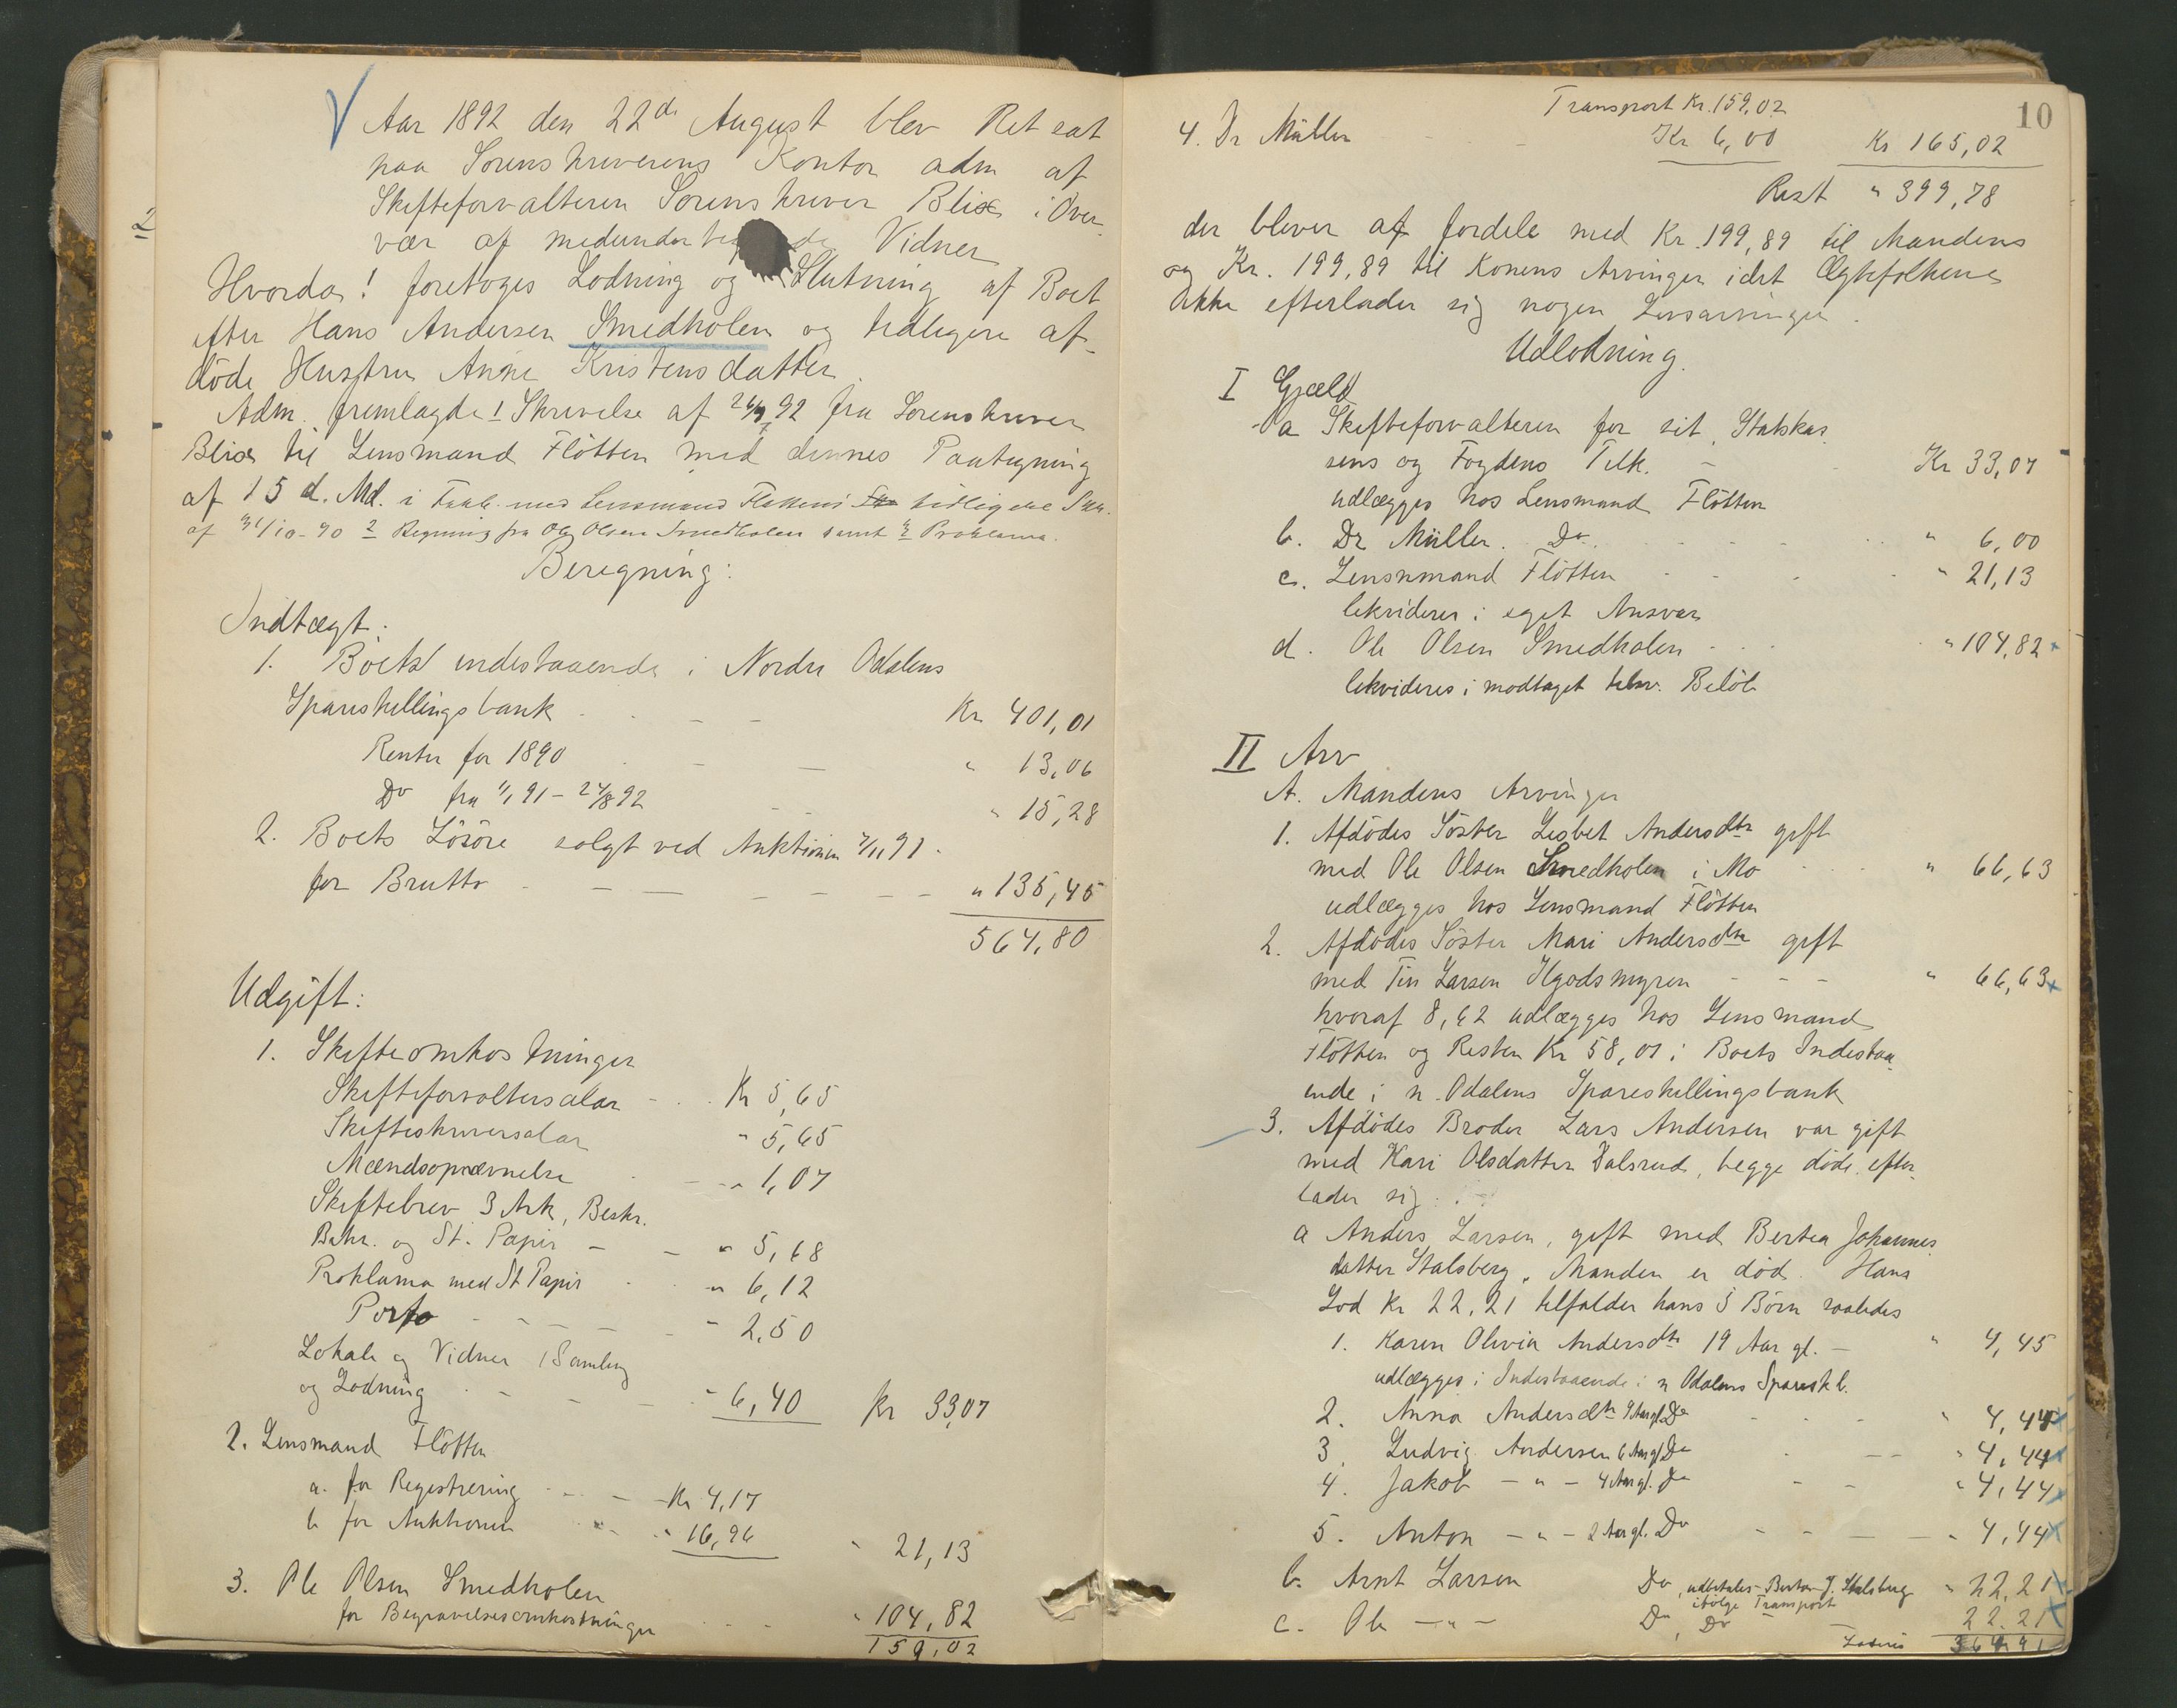 2
Aar 1892 den 22de August blev Ret sat
paa Sorenskriverens Kontor adm af
Skifteforvalteren Sorenskriver Blix i Over
vær af medunder de Vidner
Hvorda! foretoges Lodning og Slutning af Boet
efter Hans Andersen Smedholen og tidligere af-
döde Hustru Anne Kristensdatter.
Adm. fremlagde 1 Skrivelse af 92 fra Sorenskriver
Blix til Lensmand Flötten med dennes Paategning
af 15 d. Md. i med Lensmand Flöttens tidligere
af 31/10-90 2 Regning fra Ole Olsen Smedholen samt 3 Proklama.
Beregning:
Indtægt:
1. Boets indestaaende i Nordre Odalens
Spareskillingsbank - - Kr 401,01
Renter for 1890 - - " 13,06
Do fra 1/1 91 - 24/8 92 - - " 15,28
2. Boets Lösöre solgt ved Auktionen 7/11 91.
for Brutto - - - - - " 135,45
564,80
Udgift:
1. Skifteomkostninger
Skifteforvaltersalar - Kr 5,65
Skifteskriversalar " 5,65
Mændsopnævnelse - " 1,07
Skiftebrev 3 Ark, Beskr.
Behr. og St. Papir - - " 5,68
Proklama med St Papir " 6,12
Porto - - - - " 2,50
Lokale og Vidner 1 Samling
og Lodning - - " 6,40 Kr 33,07
2. Lensmand Flötten
a. for Registrering - - Kr 4,17
b for Auktionen " 16,96 " 21,13
3. Ole Olsen Smedholen
for Begravelsesomkostninger - - " 104,82
159,02
10
Transport Kr. 159,02
4. Dr Müller - - Kr 6,00 Kr 165,02
Rest " 399,78
der bliver at fordele med Kr. 199,89 til Mandens
og Kr. 199,89 til Konens Arvinger idet Ægtefolkene
ikke efterlader sig nogen Livsarvinger.
Udlodning.
I Gjæld
a Skifteforvalteren for sit, Statskas
sens og Fogdens Tilk. - Kr 33,07
udlægges hos Lensmand Flötten
b. Dr Müller. Do. - - - " 6,00
c. Lensnmand Flötten - - - " 21,13
likviderer i eget Ansvar
d. Ole Olsen Smedholen - - - " 104,82
likvideres i modtaget tilsv. Belöb
II Arv
A. Mandens Arvinger
1. Afdödes Söster Lisbet Andersdtr gift
med Ole Olsen Smedholen i Mo - - " 66,63
udlægges hos Lensmand Flötten
2. Afdödes Söster Mari Andersdtr gift
med Larsen - - - " 66,63
hvoraf 8,62 udlægges hos Lensmand
Flötten og Resten Kr 58,01 i Boets Indestaa
ende i n. Odalens Spareskillingsbank
3. Afdödes Broder Lars Andersen var gift
med Kari Olsdatter Dalsrud, begge döde, efter
lader sig:
a Anders Larsen, gift med Bertea Johannes
datter Stalsberg, Manden er död. Hans
Lod Kr 22,21 tilfalder hans 5 Börn saaledes
1. Karen Olivia Andersdtr 19 Aar gl. - " 4,45
udlægges i Indestaaende i n Odalens Sparesk b.
2. Anna Andersdtr 9 Aar gl. Do - - - " 4,44
3. Ludvig Andersen 6 Aar gl. Do - - - " 4,44
4. Jakob - " - 4 Aar gl. Do - - " 4,44
5. Anton - " - 2 Aar gl. Do - - - - " 4,44
b. Arnt Larsen Do, udbetales Bertea J. Stalsberg " 22,21
ifölge Transport
c. Ole - " - Do, Do - 22.21
Lateris 364,91